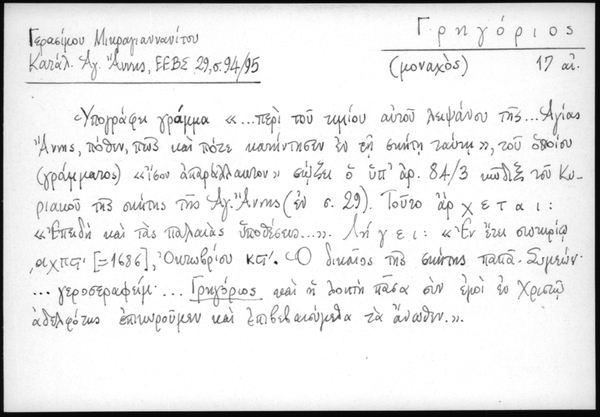 Γερασίμου Μικραγιαννανίτου
Κατάλ. Ἁγ. Ἄννης, ΕΕΒΣ 29, σ. 94/95
Γρηγόριος
(μοναχὸς) 17 αἰ.
Ὑπογράφει γράμμα «...περὶ τοῦ τιμίου αὐτοῦ λειψάνου τῆς... Ἁγίας
Ἄννης, πόθεν, πῶς καὶ πότε κατήντησεν ἐν τῇ σκήτῃ ταύτῃ», τοῦ ὁποίου
(γράμματος) «ἴσον ἀπαράλλακτον» σῴζει ὁ ὑπ' ἀρ. 84/3 κῶδιξ τοῦ Κυ-
ριακοῦ τῆς σκήτης τῆς Ἁγ. Ἄννης (ἐν σ. 29). Τοῦτο ἄρχεται:
«Ἐπειδὴ καὶ τὰς παλαιὰς ὑποθέσεις...». Λήγει: «Ἐν ἔτει σωτηρίῳ
͵αχπϛ' [=1686], Ὀκτωβρίου κϛ'. Ὁ δικαῖος τῆς σκήτης παπᾶ-Συμεών·
... γεροσεραφείμ·... Γρηγόριος καὶ ἡ λοιπὴ πᾶσα σὺν ἐμοὶ ἐν Χριστῷ
ἀδελφότης ἐπικυροῦμεν καὶ ἐπιβεβαιούμεθα τὰ ἄνωθεν.».